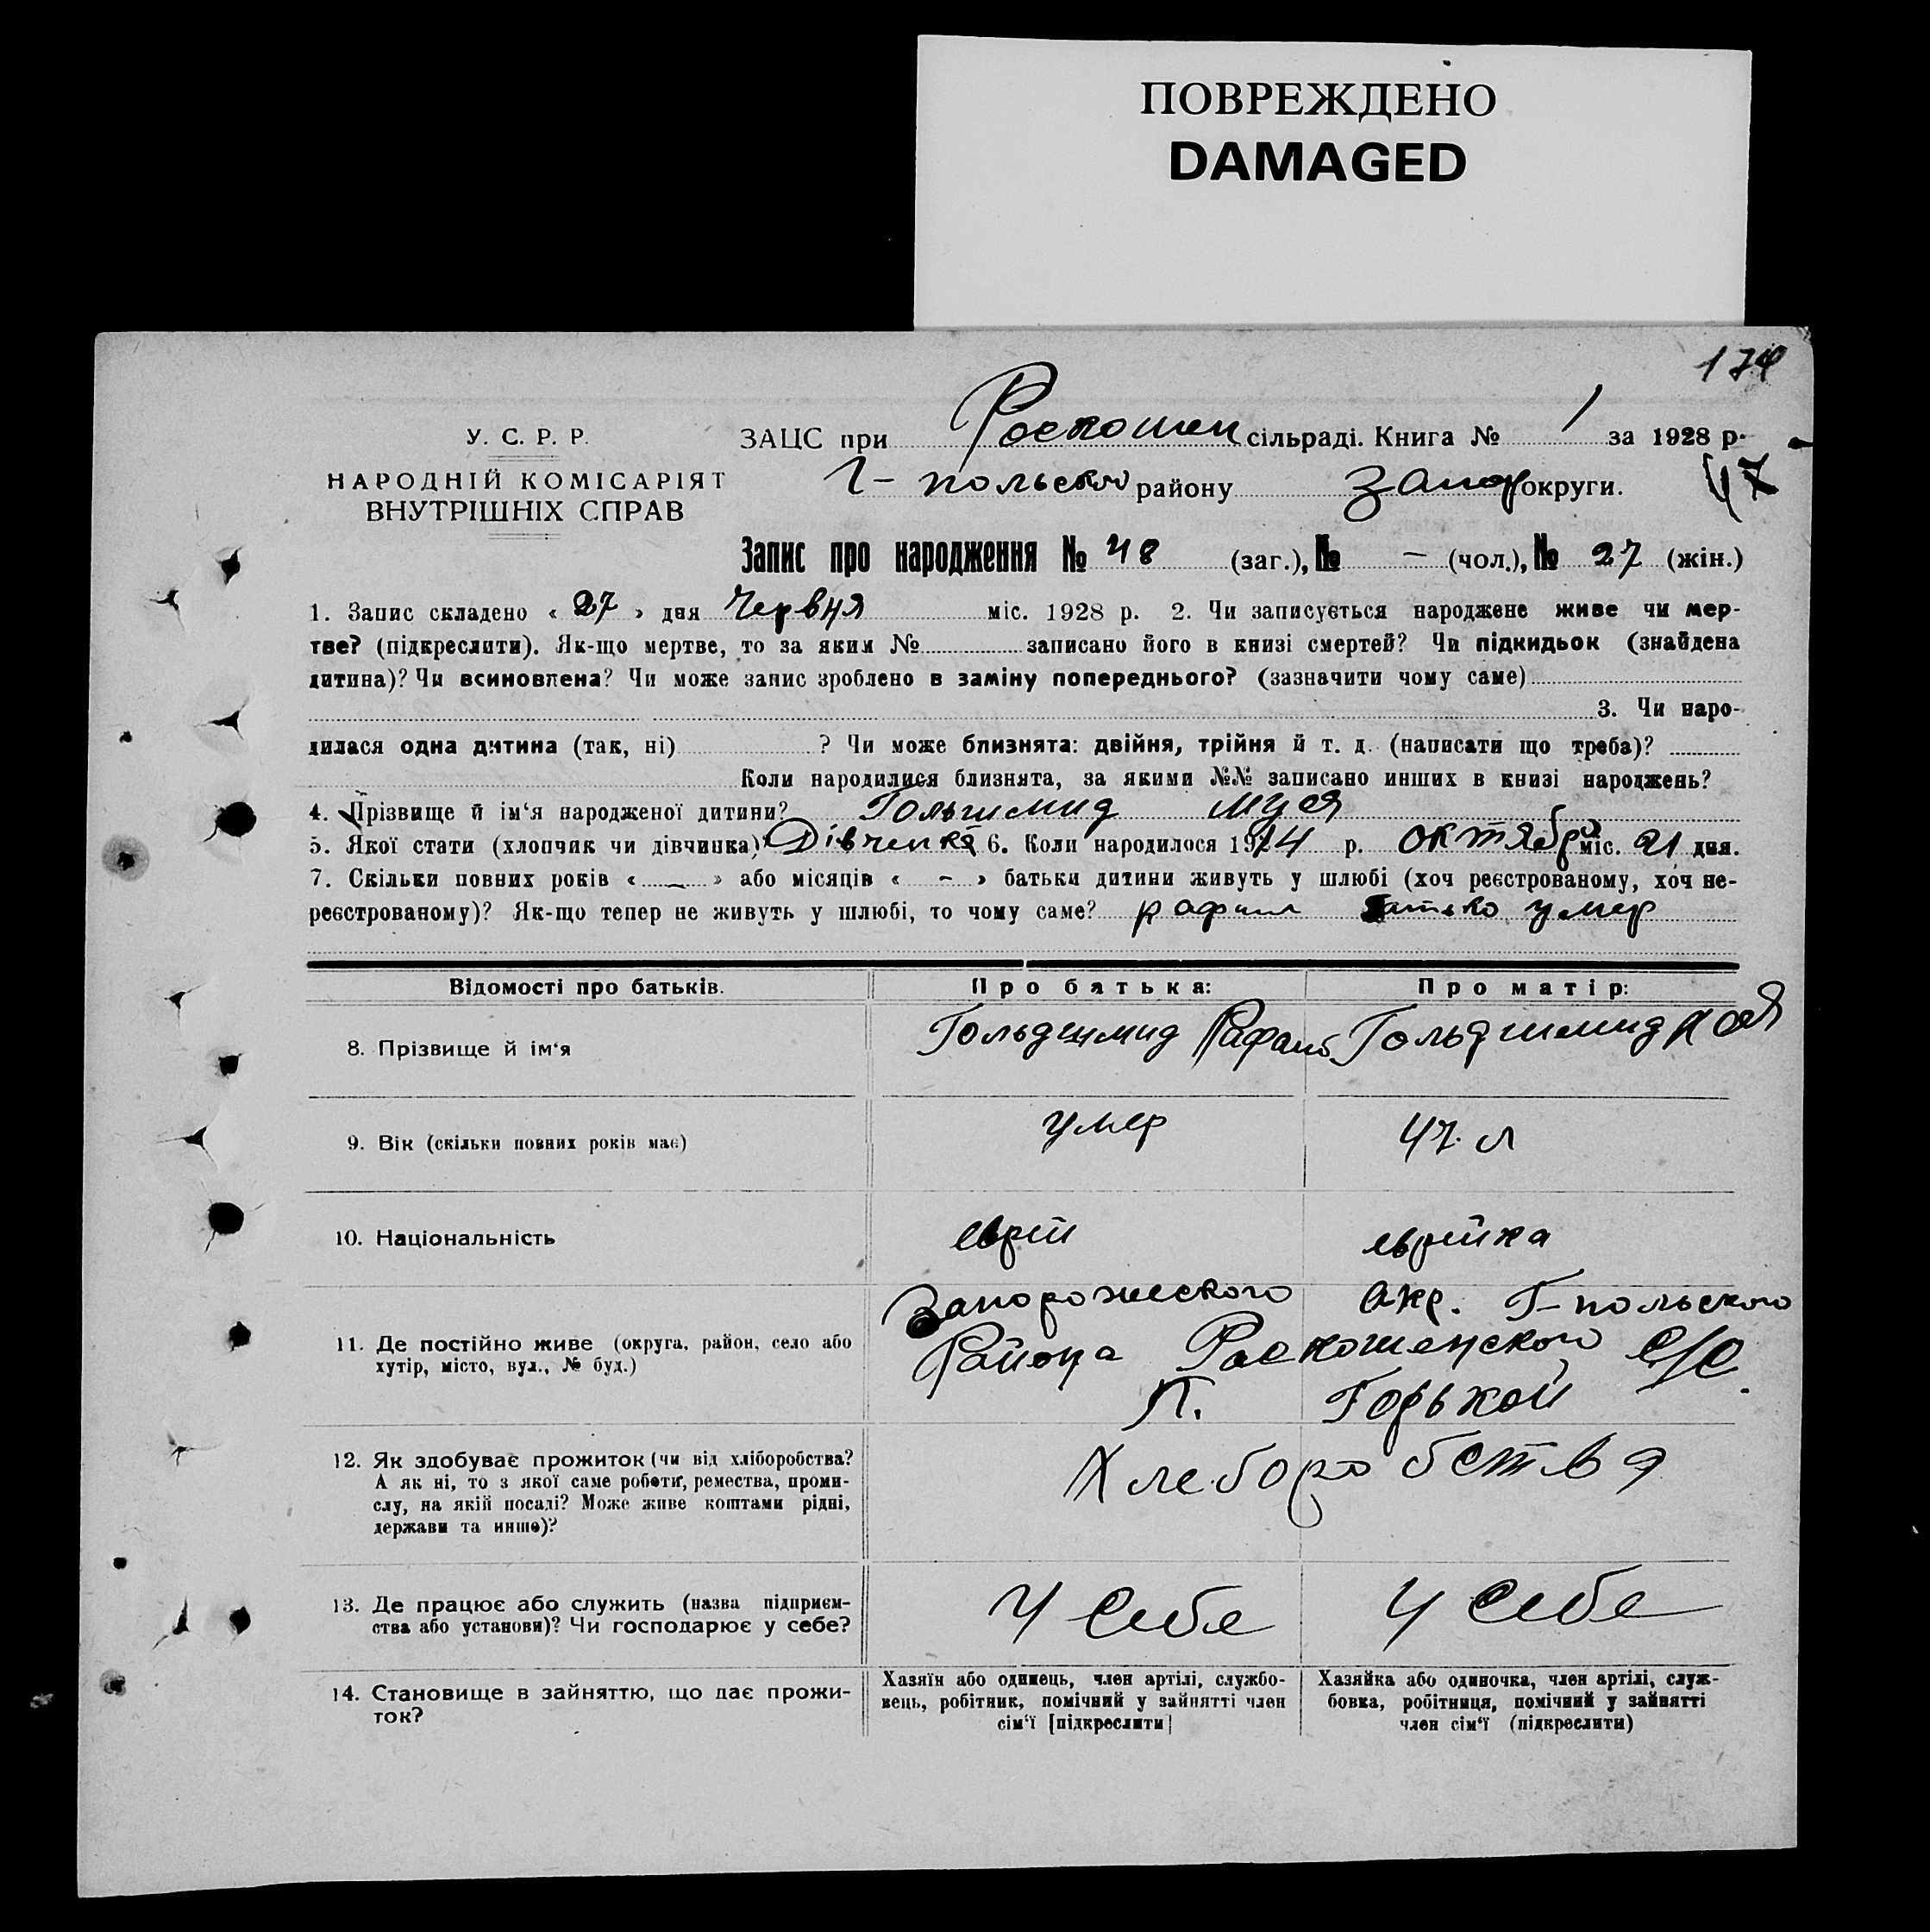 ПОВРЕЖДЕНО
DAMAGED
174
У. С. Р. Р.
НАРОДНІЙ КОМІСАРІЯТ
ВНУТРІШНІХ СПРАВ
ЗАЦС при Роскошен сільраді. Книга № 1 за 1928 р.
Г-польского району Запор округи. 47
Запис про народження № 48 (заг.), № — (чол.), № 27 (жін.)
1. Запис складено « 27 » дня Червня міс. 1928 р. 2. Чи записується народжене живе чи мер-
тве? (підкреслити). Як-що мертве, то за яким № записано його в книзі смертей? Чи підкидьок (знайдена
дитина)? Чи всиновлена? Чи може запис зроблено в заміну попереднього? (зазначити чому саме)
3. Чи наро-
дилася одна дитина (так, ні) ? Чи може близнята: двійня, трійня й т. д. (написати що треба)?
Коли народилися близнята, за якими №№ записано инших в книзі народжень?
4. Прізвище й ім‘я народженої дитини? Гольшмид
5. Якої стати (хлопчик чи дівчинка) Дівченка 6. Коли народилося 1914 р. октября міс. 21 дня.
7. Скільки повних років « — » або місяців « — » батьки дитини живуть у шлюбі (хоч реєстрованому, хоч не-
реєстрованому)? Як-що тепер не живуть у шлюбі, то чому саме? батько умер
Відомості про батьків.
Про батька:
Про матір:
8. Прізвище й ім‘я
Гольдшмид Рафаил
Гольдшмид
9. Вік (скільки повних років має)
умер
47 л
10. Національність
еврей
еврейка
11. Де постійно живе (округа, район, село або
хутір, місто, вул., № буд.)
Запорожеского Окр. Г-польского
Района Роскошенского С/С.
П. Горькой
12. Як здобуває прожиток (чи від хліборобства?
А як ні, то з якої саме роботи, ремества, проми-
слу, на якій посаді? Може живе коштами рідні,
держави та инше)?
Хлеборобства
13. Де працює або служить (назва підприєм-
ства або установи)? Чи господарює у себе?
У себе
У себе
14. Становище в зайняттю, що дає прожи-
ток?
Хазяїн або одинець, член артілі, службо-
вець, робітник, помічний у зайнятті член
сім‘ї [підкреслити]
Хазяйка або одиночка, член артілі, служ-
бовка, робітниця, помічний у зайнятті
член сім‘ї (підкреслити)